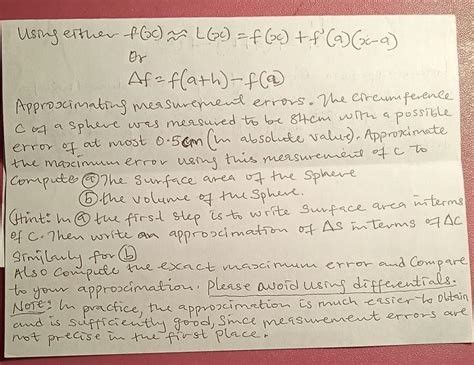 Using either f(x) ≈ L(x) = f(x) + f'(a)(x-a)
Or
Δf = f(a+h) - f(a)
Approximating measurement errors. The circumference
C of a sphere was measured to be 84cm with a possible
error of at most 0.5cm (in absolute value). Approximate
the maximum error using this measurement of C to
Compute: (a) The surface area of the Sphere
(b) the volume of the Sphere.
(Hint: In (a) the first step is to write surface area in terms
of C. Then write an approximation of ΔS in terms of ΔC
Similarly for (b)
Also compute the exact maximum error and Compare
to your approximation. Please avoid using differentials.
Note: In practice, the approximation is much easier to obtain
and is sufficiently good, Since measurement errors are
not precise in the first place.